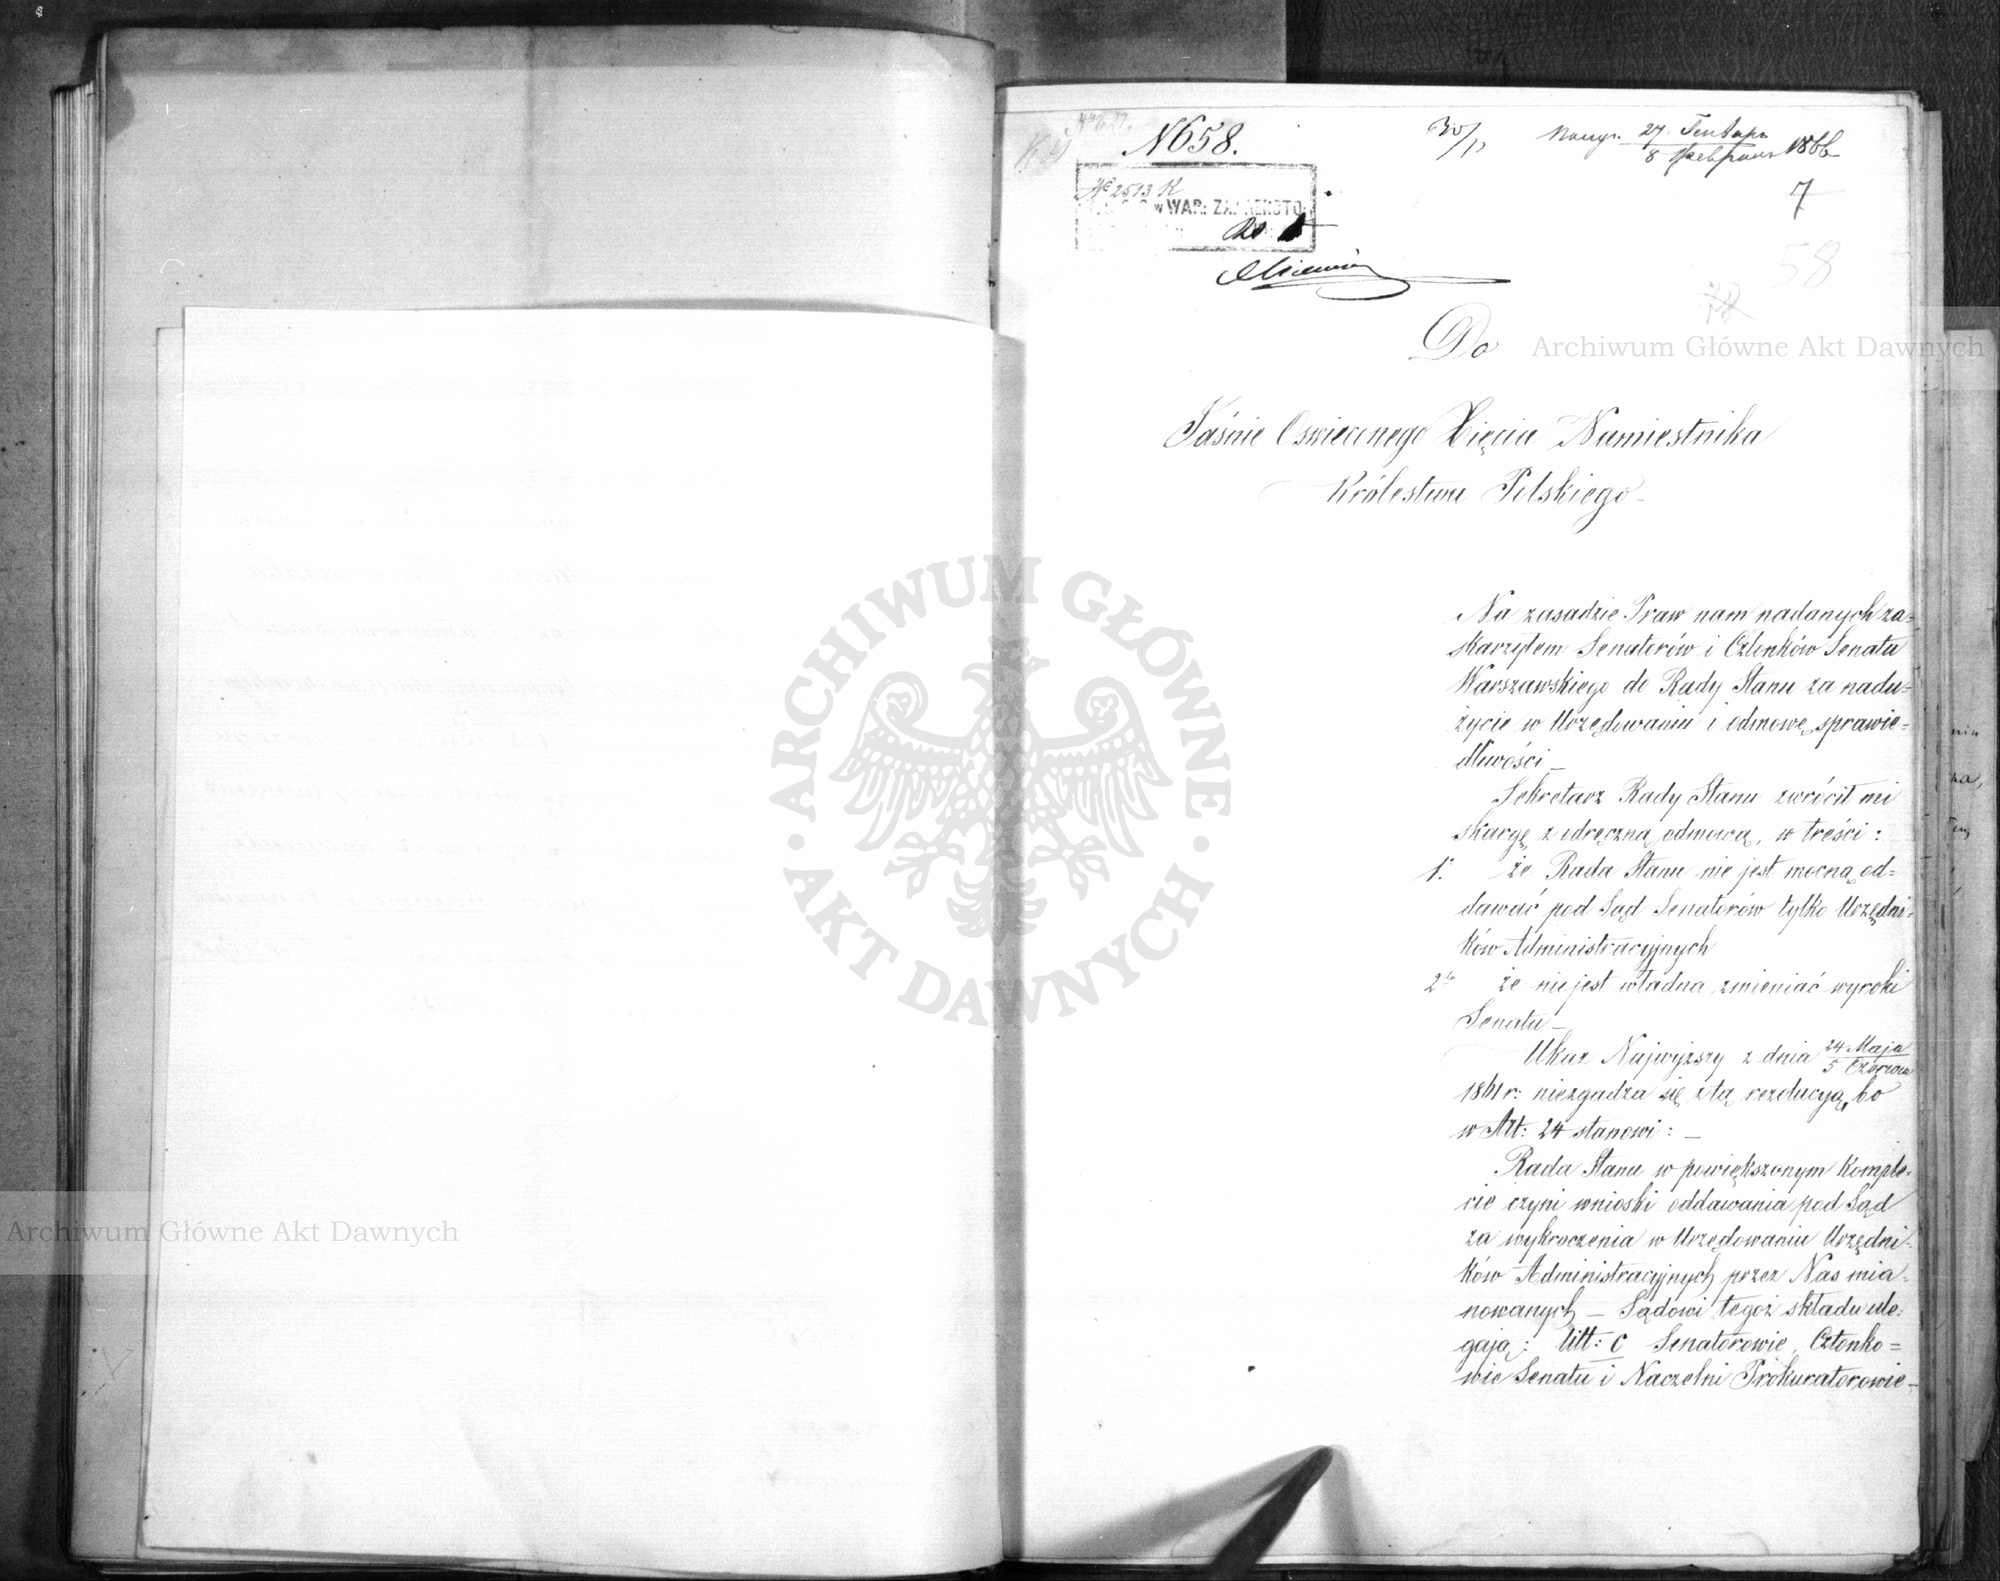 N 658.
30/11
Получ. 27 Генваря / 8 Февраля 1866
7
58
№ 2513 K
w WAR: ZA
Do
Jaśnie Oświeconego Xięcia Namiestnika
Królestwa Polskiego
Na zasadzie Praw nam nadanych za-
skarżyłem Senatorów i Członków Senatu
Warszawskiego do Rady Stanu za nadu-
życie w Urzędowaniu i odmowę sprawie-
dliwości
Sekretarz Rady Stanu zwrócił mi
skargę z odręczną odmową, w treści:
1. że Rada Stanu nie jest mocną od-
dawać pod Sąd Senatorów tylko Urzędni-
ków Administracyjnych
2do że nie jest władna zmieniać wyroki
Senatu
Ukaz Najwyższy z dnia 24 Maja / 5 Czerwca
1861 r: niezgadza się z tą rezolucyą, bo
w Art: 24 stanowi: —
Rada Stanu w powiększonym Komple-
cie czyni wnioski oddawania pod Sąd
za wykroczenia w Urzędowaniu Urzędni-
ków Administracyjnych przez Nas mia-
nowanych — Sądowi tegoż składu ule-
gają: litt: C Senatorowie, Członko-
wie Senatu i Naczelni Prokuratorowie
ARCHIWUM GŁÓWNE AKT DAWNYCH
Archiwum Główne Akt Dawnych
Archiwum Główne Akt Dawnych